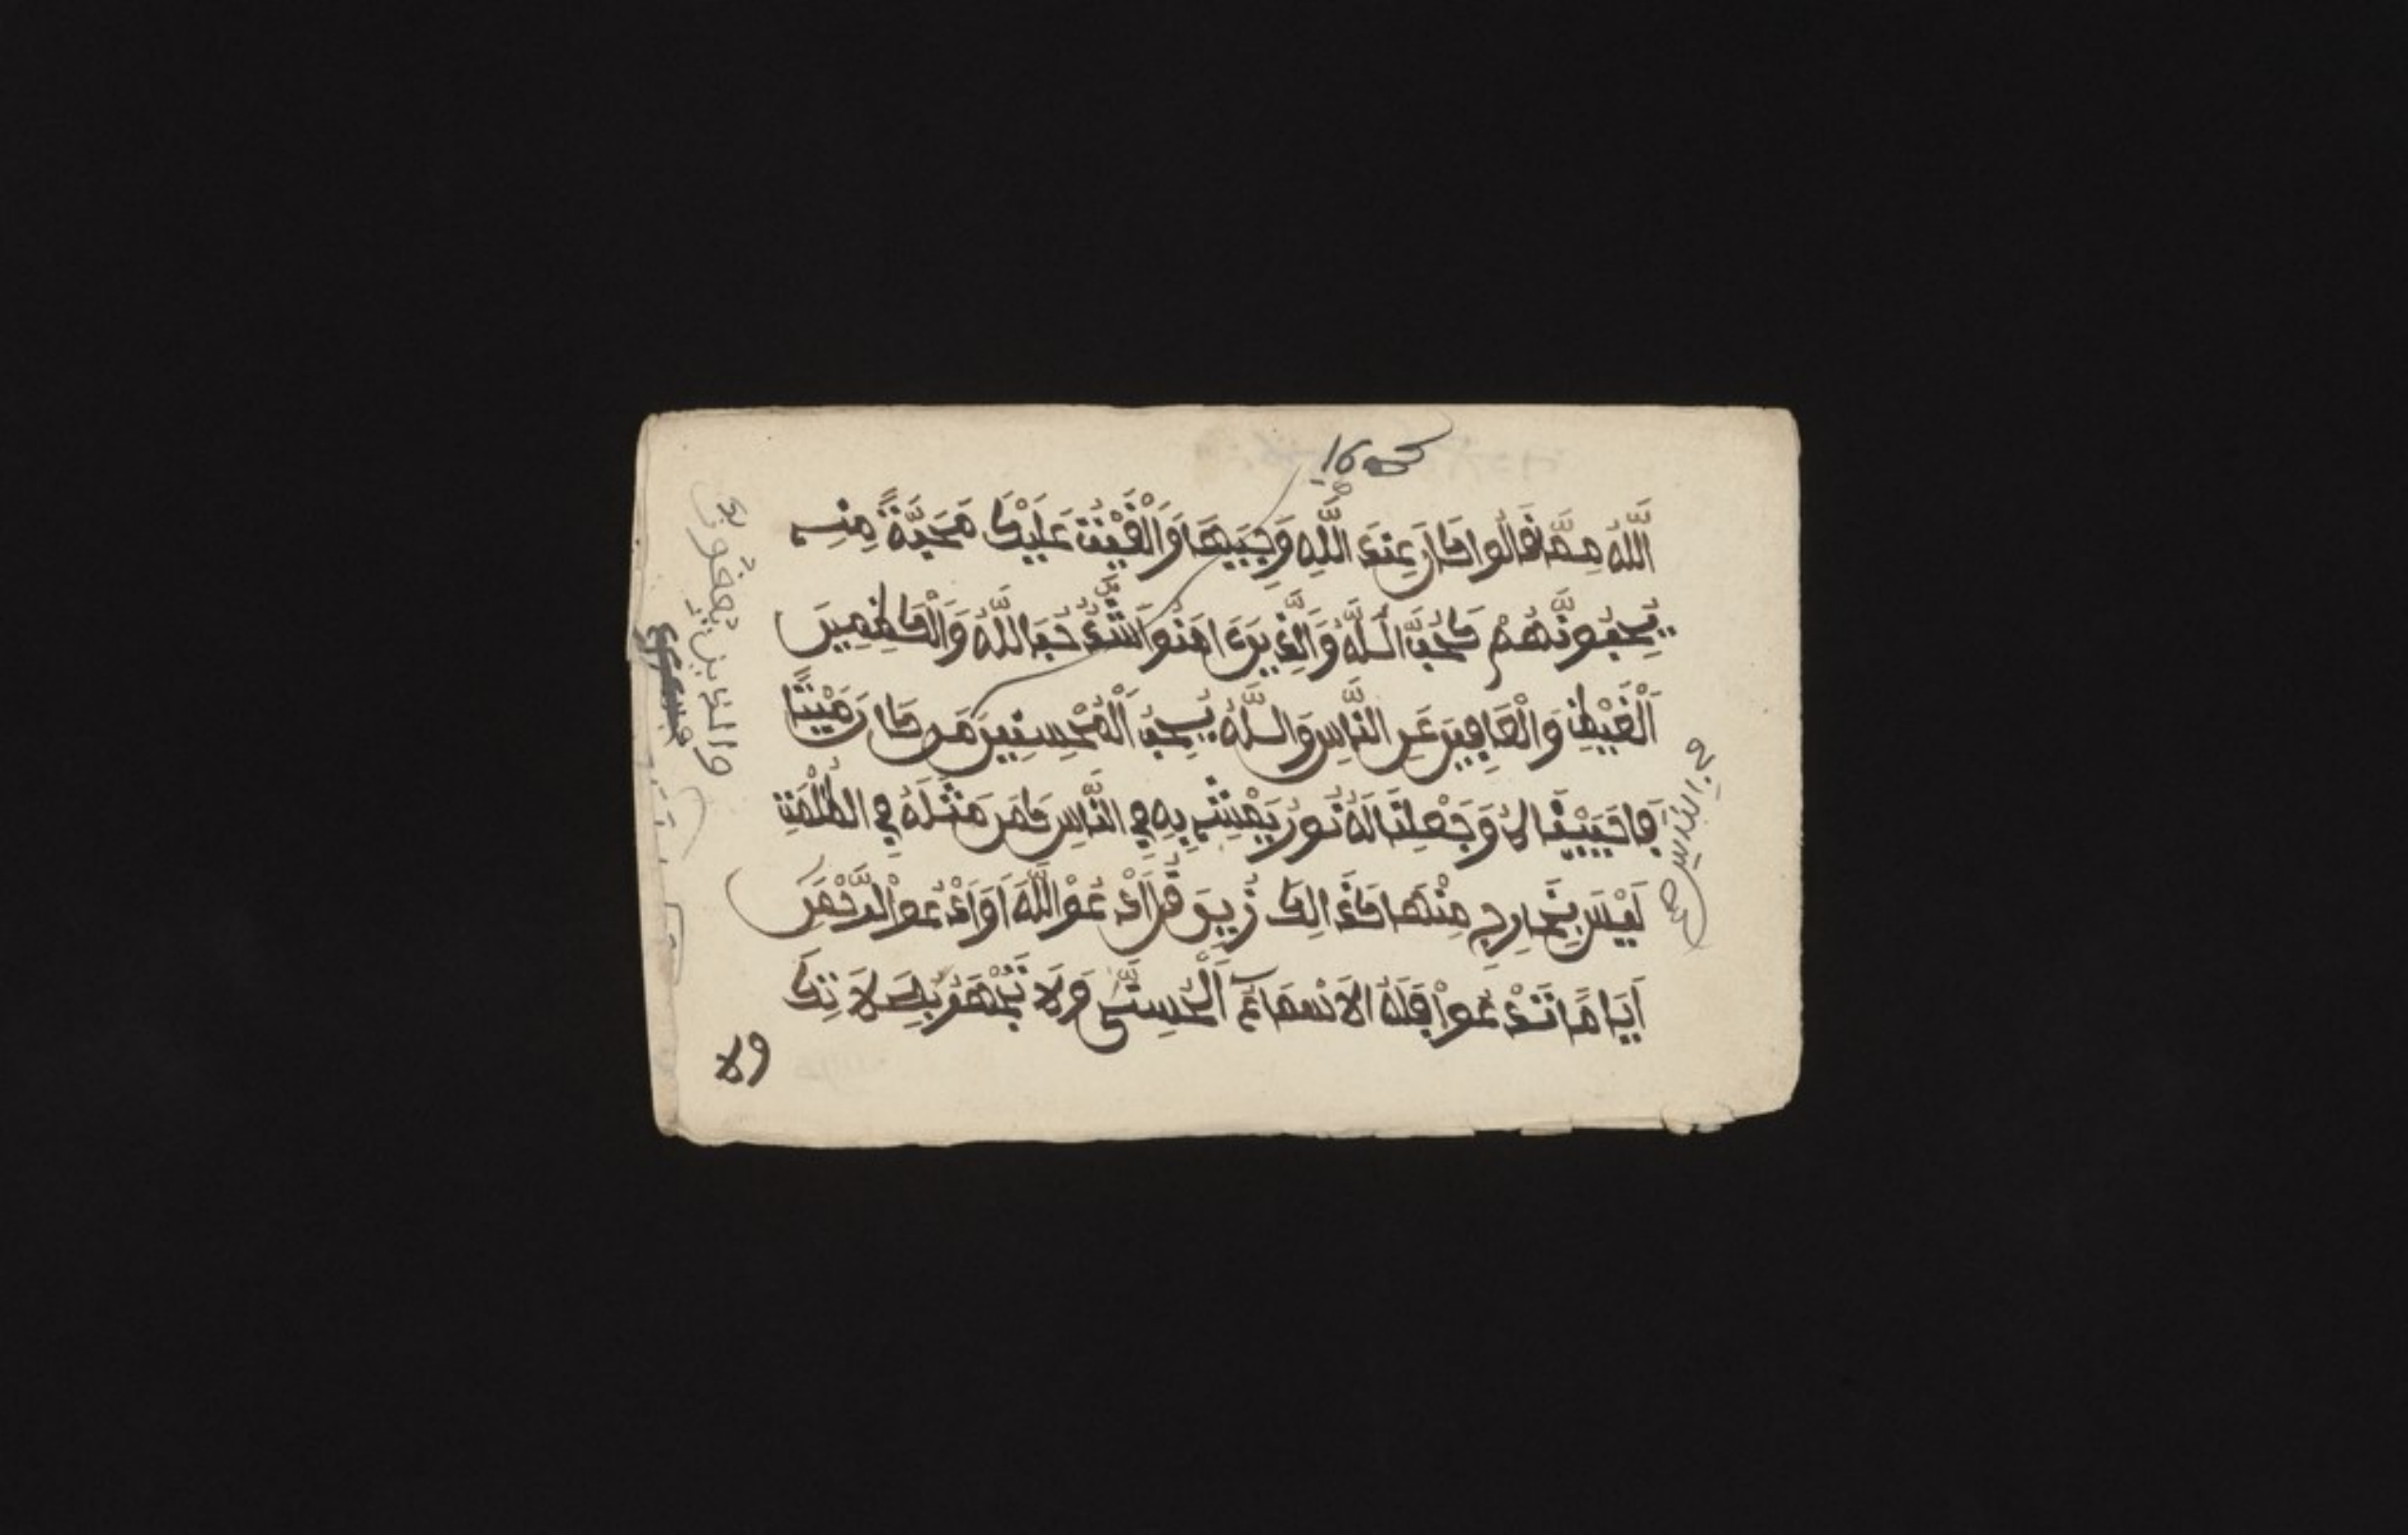 اللَّهُ مِمَّا قَالُوا كَانَ عِندَ اللَّهِ وَجِيهًا وَأَلْقَيْتُ عَلَيْكَ مَحَبَّةً مِنِّي
يُحِبُّونَهُمْ كَحُبِّ اللَّهِ وَالَّذِينَ ءَامَنُوا أَشَدُّ حُبًّا لِلَّهِ وَالْكَاظِمِينَ
الْغَيْظِ وَالْعَافِينَ عَنِ النَّاسِ وَاللَّهُ يُحِبُّ الْمُحْسِنِينَ مَن كَانَ مَيْتًا
فَاحْيَيْنَاهُ وَجَعَلْنَا لَهُ نُورًا يَمْشِي بِهِ فِي النَّاسِ كَمَن مَثَلُهُ فِي الظُّلُمَاتِ
لَيْسَ بِخَارِجٍ مِنْهَا كَذَالِكَ زُيِّنَ قُلِ ادْعُوا اللَّهَ أَوِ ادْعُوا الرَّحْمَنَ
أَيًّا مَا تَدْعُوا فَلَهُ الاَسْمَاءُ الْحُسْنَى وَلَا تَجْهَرْ بِصَلَاتِكَ
ولا